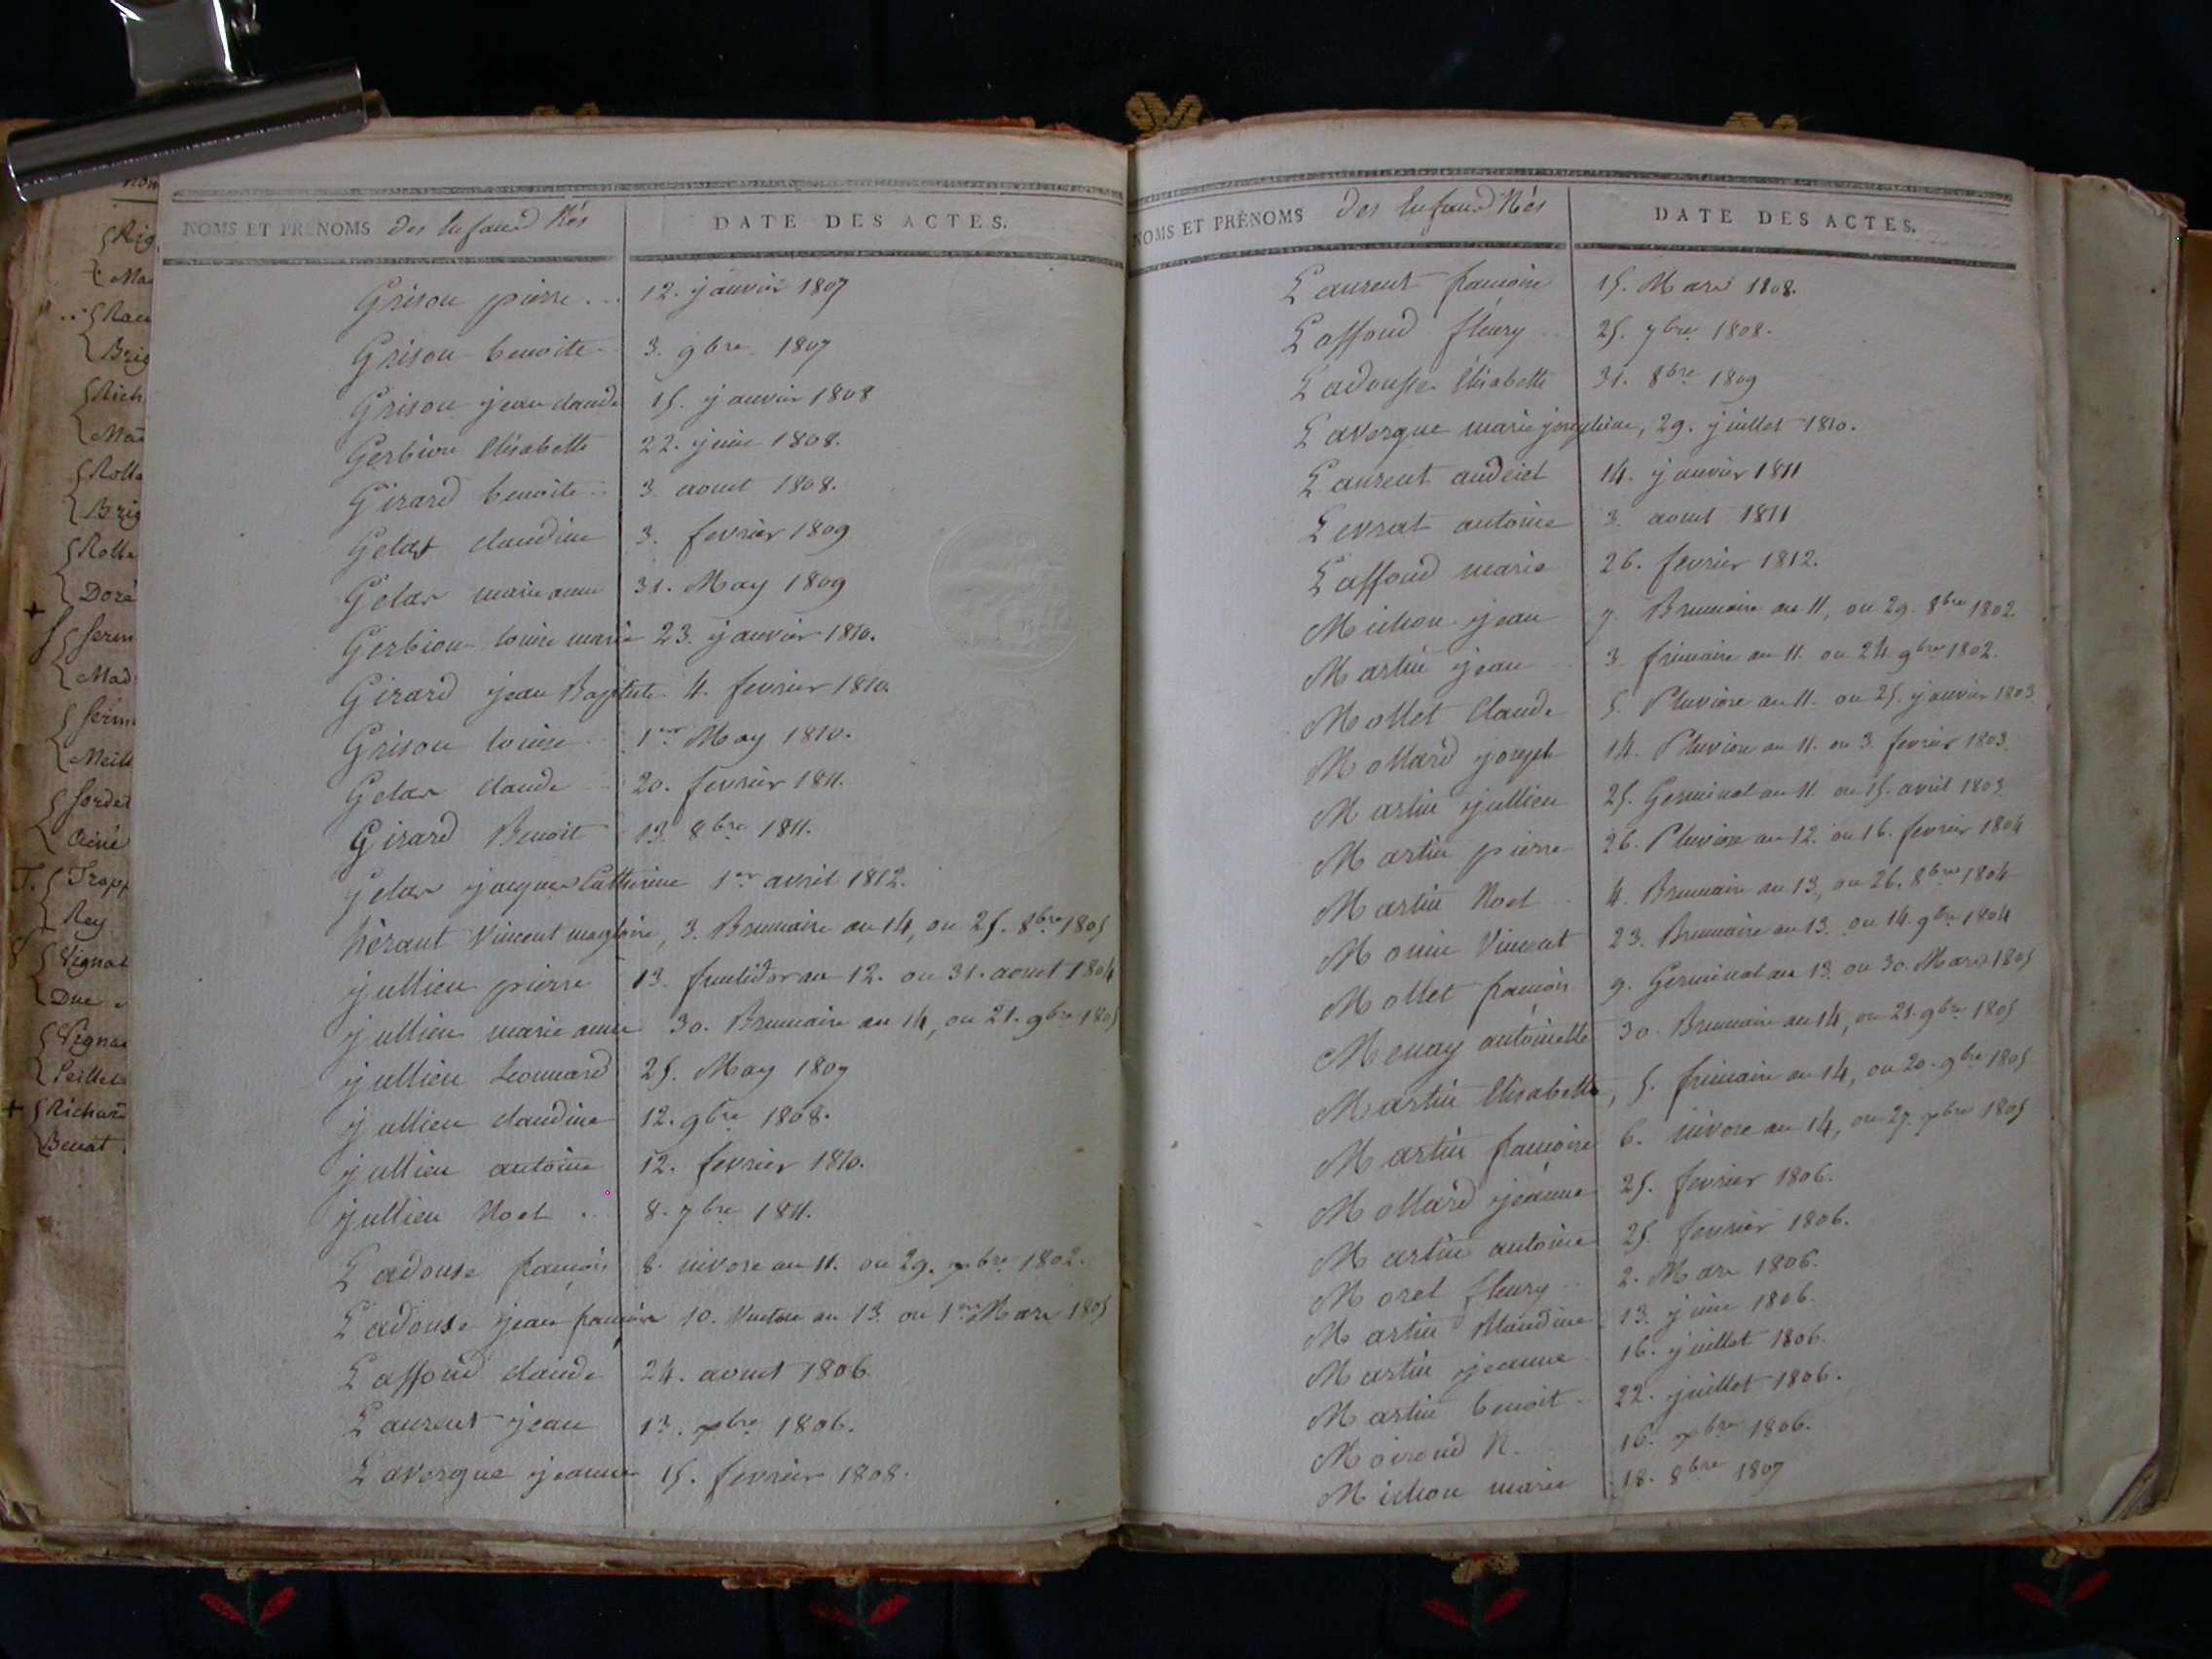 NOMS ET PRÉNOMS des Enfans Nés
DATE DES ACTES.
Grison pierre ... 12. janvier 1807
Grison benoite 3. 9bre 1807
Grison jean claude 15. janvier 1808
Gerbion Elisabeth 22. juin 1808.
Girard benoite .. 3. aout 1808.
Gelas claudine 3. fevrier 1809
Gelas marie anne 31. May 1809
Gerbion louise marie 23. janvier 1810.
Girard jean Baptiste 4. fevrier 1810.
Grison louise .. 1er May 1810.
Gelas claude .. 20. fevrier 1811.
Girard Benoit 13. 8bre 1811.
Gelas jacques Catherine 1er avril 1812.
héraut Vincent magloire, 3. Brumaire an 14, ou 25. 8bre 1805
jullien pierre 13. fructidor an 12. ou 31. aout 1804
jullien marie anne 30. Brumaire an 14, ou 21. 9bre 1805
jullien Leonnard 25. May 1807
jullien claudine 12. 9bre 1808.
jullien antoine 12. fevrier 1810.
jullien Noel .. 8. 7bre 1811.
Ladouse françois 8. nivose an 11. ou 29. xbre 1802.
Ladouse jean françois 10. Ventose an 13. ou 1er Mars 1805
Laffond claude 24. aout 1806
Laurent jean 13. xbre 1806.
Lavergne jeanne 15. fevrier 1808.
NOMS ET PRÉNOMS des Enfans Nés
DATE DES ACTES.
Laurent françoise 15. Mars 1808.
Laffond fleury .. 25. 7bre 1808.
Ladousse Elisabeth 31. 8bre 1809
Lavergne marie josephine, 29. juillet 1810.
Laurent 14. janvier 1811
Levrat antoine 3. aout 1811
Laffond marie 26. fevrier 1812.
Michon jean 7. Brumaire an 11, ou 29. 8bre 1802
Martin jean .. 3. frimaire an 11. ou 24. 9bre 1802.
Mollet Claude 5. Pluviose an 11. ou 25. janvier 1803
Mollard joseph 14. Pluviose an 11. ou 3. fevrier 1803
Martin jullien 25. Germinal an 11. ou 15. avril 1803
Martin pierre 26. Pluviose an 12. ou 16. fevrier 1804
Martin Noel .. 4. Brumaire an 13, ou 26. 8bre 1804
Monin Vincent 23. Brumaire an 13. ou 14. 9bre 1804
Mollet françois 9. Germinal an 13. ou 30. Mars 1805
Menay antoinette 30. Brumaire an 14, ou 21. 9bre 1805
Martin Elisabeth, 5. frimaire an 14, ou 20. 9bre 1805
Martin françoise 6. nivose an 14, ou 27. xbre 1805
Mollard jeanne 25. fevrier 1806.
Martin antoine 25. fevrier 1806.
Morel fleury .. 2. Mars 1806.
Martin Claudine 13. juin 1806.
Martin jeanne 16. juillet 1806.
Martin benoit 22. juillet 1806.
Moiroud N. 16. xbre 1806.
Michon marie 18. 8bre 1807